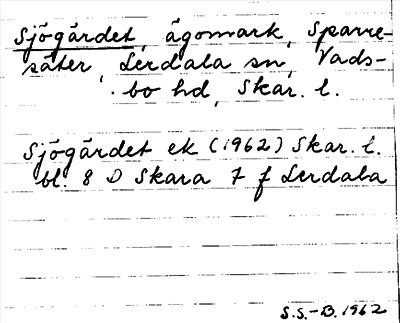 Sjögärdet, ägomark, Sparre-
säter, Lerdala sn, Vads-
bo hd, Skar. l.
Sjögärdet ek (1962) Skar. l.
bl. 8 D Skara 7 f Lerdala
S.S.-B. 1962